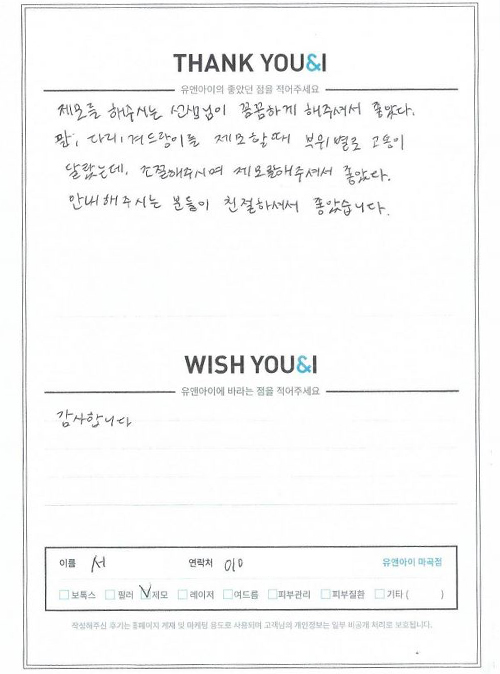 THANK YOU&I
유앤아이의 좋았던 점을 적어주세요
제모를 해주시는 선생님이 꼼꼼하게 해주셔서 좋았다.
팔, 다리, 겨드랑이를 제모할때 부위별로 고통이
달랐는데, 조절해주시며 제모를해주셔서 좋았다.
안내해주시는 분들이 친절하셔서 좋았습니다.
WISH YOU&I
유앤아이에 바라는 점을 적어주세요
감사합니다
이름 서 연락처 010 유앤아이 마곡점
보톡스 필러 제모 레이저 여드름 피부관리 피부질환 기타 ( )
작성해주신 후기는 홈페이지 게재 및 마케팅 용도로 사용되며 고객님의 개인정보는 일부 비공개 처리로 보호됩니다.